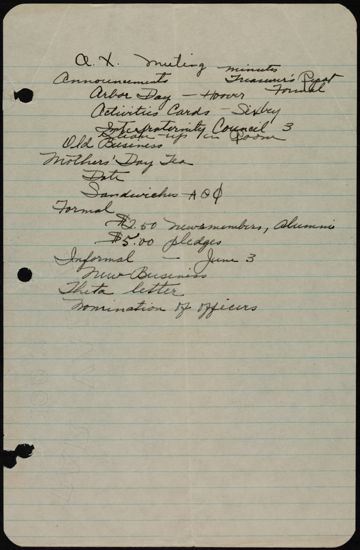 A. X. Meeting
minutes
Announcements Treasurer's Report
Arbor Day - Hower Formal
Activities Cards - Sixby
Interfraternity Council 3
Clean up in Room
Old Business
Mothers' Day Tea
Date
Sandwiches - A Θ Φ
Formal
$2.50 new members, Alumni
$5.00 pledges
Informal - June 3
New Business
Theta letter
Nomination of officers